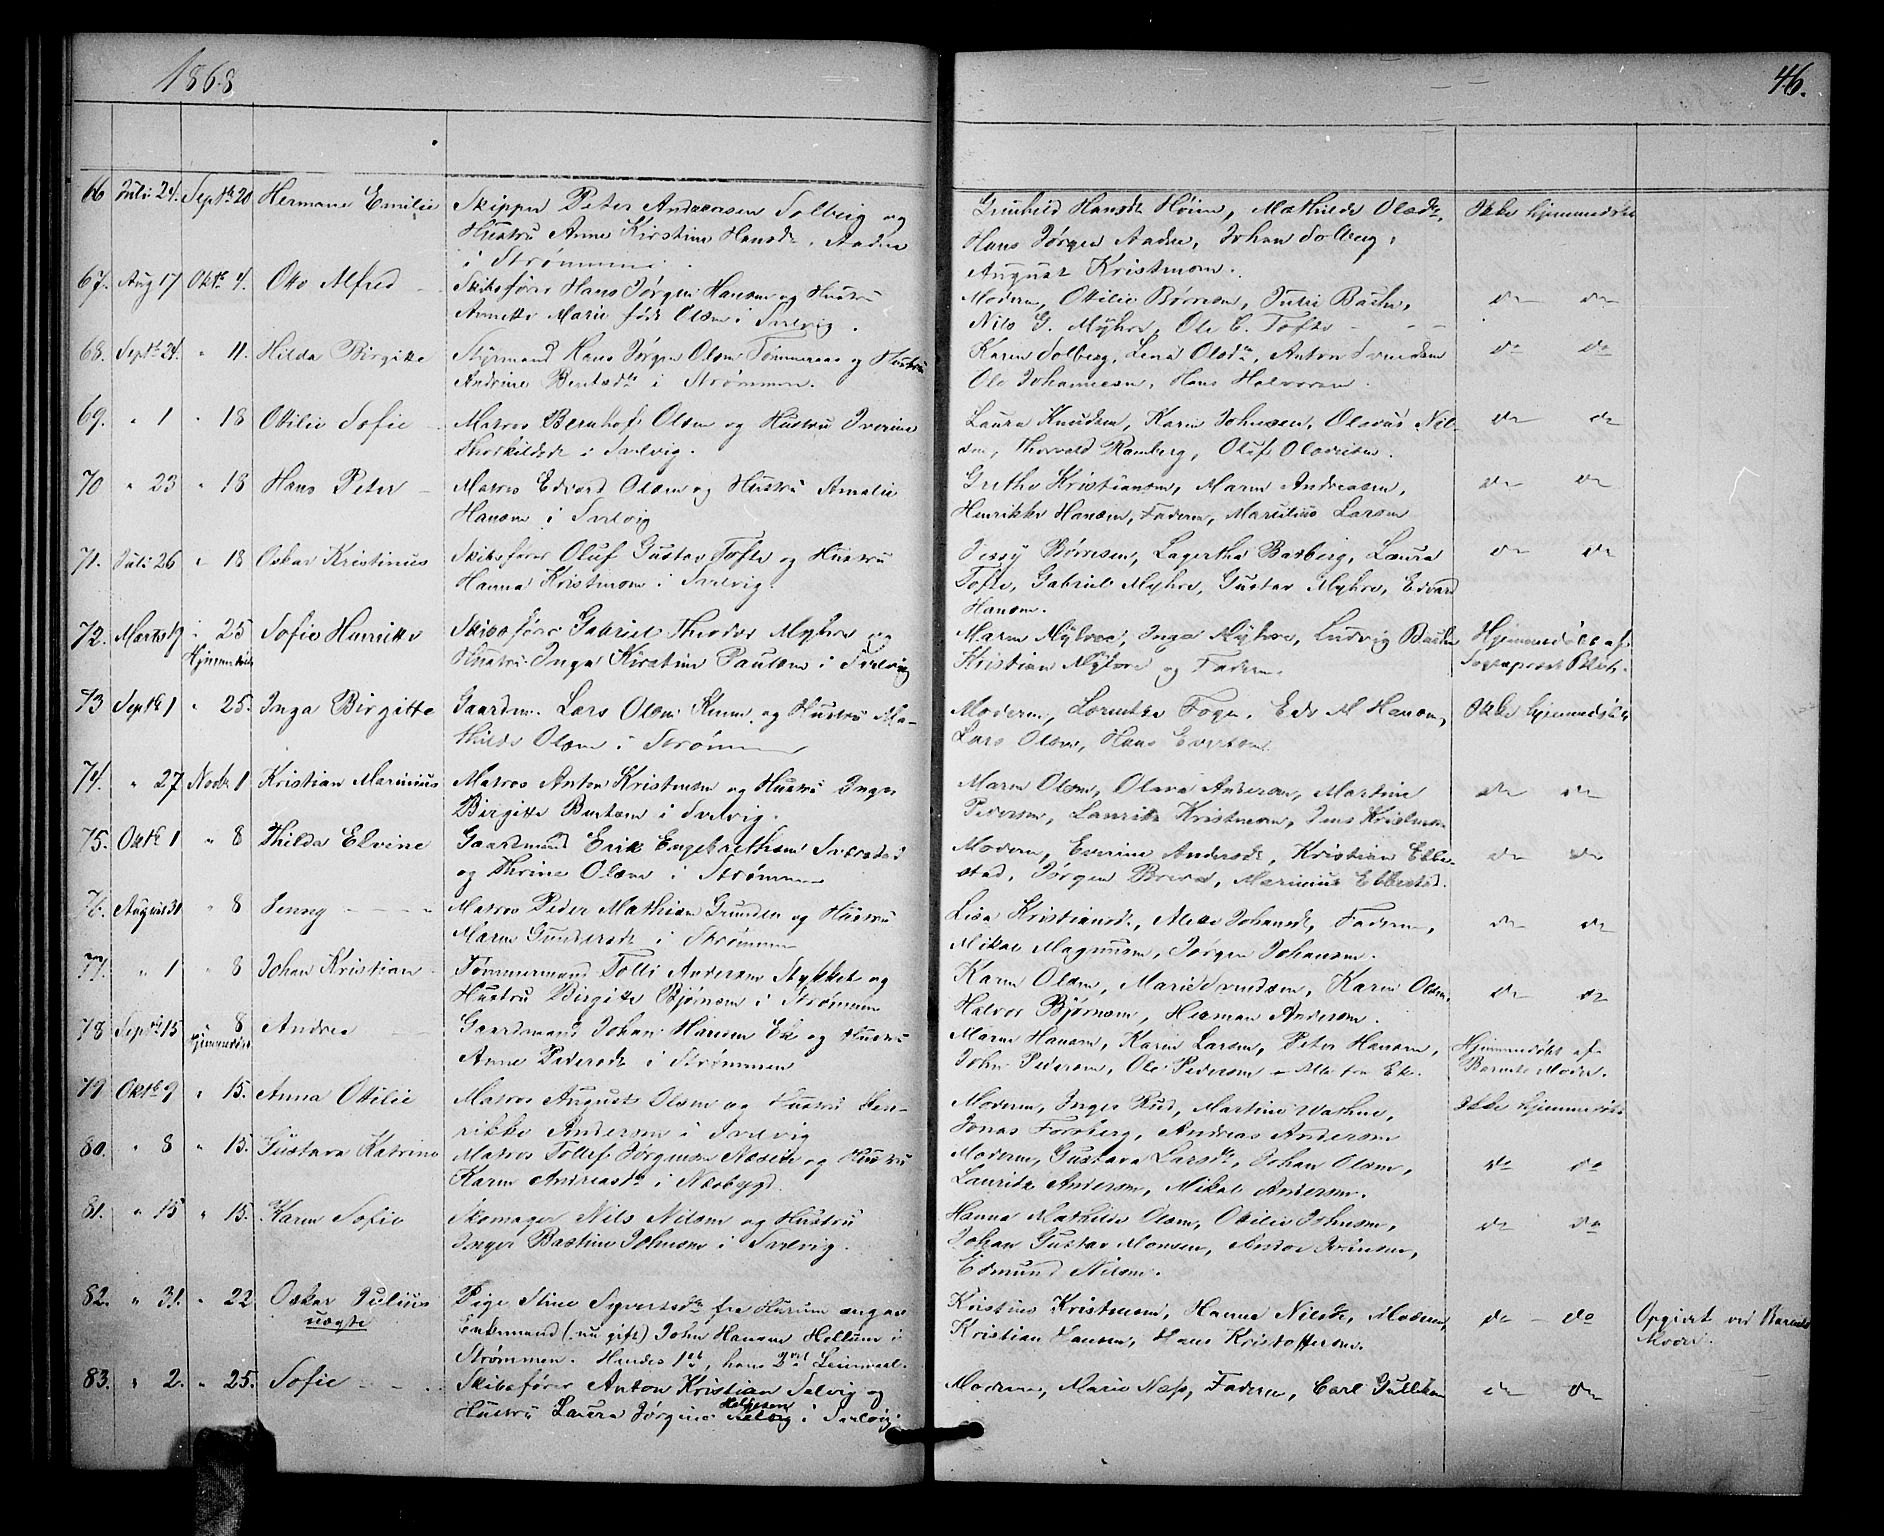 1868
46.
66 Juli 24. Septbr 20 Hermane Emilie Skipper Peter Andersen Solberg og Gunhild Hansdr Høien, Mathilde Olsdr, Ikke hjemmedøbt
Hustru Anne Kirstine Hansdr. Aadne Hans Jørgen Aadne, Johan Solberg,
i Strømmen. August Kristensen.
67. Aug 17 Oktbr 4. Otto Alfred Skibsfører Hans Jørgen Hansen og Hustru Moderen, Ottilie Børresen, Julie Bache, do do
Annette Marie født Olsen i Svelvig. Nils G. Myhre, Ole C. Tofte
68. Septbr 24. " 11. Hilda Birgitte Styrmand Hans Jørgen Olsen Tømmeraas og Hustru Karen Solberg, Lena Olsdr, Anton Svendsen do do
Andrine Berntsdr i Strømmen. Ole Johannesen, Hans Halvorsen.
69. " 1 " 18 Ottilie Sofie Matros Bernhof Olsen og Hustru Iverine Laura Knudsen, Karen Johnsen, Olavus Nil- do do
Thorkildsdr i Svelvig. sen, Thorvald Ramberg, Oluf Olavesen.
70 " 23 " 18 Hans Peter Matros Edvard Olsen og Hustru Amalie Grethe Kristiansen, Maren Andreasen, do do
Hansen i Svelvig Henrikke Hansen, Faderen, Marelius Larsen
71. Juli 26 " 18 Oskar Kristinus Skibsfører Oluf Gustav Tofte og Hustru Jessy Børresen, Lagertha Basberg, Laura do do
Hanna Kristensen i Svelvig. Tofte, Gabriel Myhre, Gustav Myhre, Edvard
Hansen.
72. Marts 19 " 25 Sofie Henrikke Skibsfører Gabriel Theodor Myhre og Maren Myhre, Inga Myhre, Ludvig Bache Hjemmedøbt af
Hjemmedøbt Hustru Inga Kirstine Paulsen i Svelvig Kristian Myhre og Faderen. Sognepræst Blich.
73 Septbr 1 " 25. Inga Birgitte Gaardm. Lars Olsen og Hustru Ma- Moderen, Lorentse Foge, Edv M Hansen, Ikke hjemmedøbt
thilde Olsen i Strømmen Lars Olsen, Hans Evertsen.
74. " 27 Novbr 1 Kristian Marinius Matros Anton Kristensen og Hustru Inger Maren Olsen, Olava Andersen, Martine do do
Birgitte Berntsen i Svelvig. Pedersen, Lauritz Kristensen, Jens Kristensen
75. Oktbr 1 " 8 Thilda Elvine Gaardmand Erik Engebrethsen Sverstad Moderen, Everine Andersdr, Kristian Ebbe- do do
og Thrine Olsen i Strømmen stad, Jørgen Brevd, Marinius Ebbestad.
76. August 31 " 8 Jenny Matros Peder Mathisen Grunden og Hustru Lisa Kristiansdr, Mette Johansdr, Faderen, do do
Maren Gundersdr i Strømmen Mikal Magnusen, Jørgen Johansen.
77. " 1 " 8 Johan Kristian Tømmermand Tolli Andersen Stykket og Karen Olsen, Marie Svendsen, Karen Olsen, do do
Hustru Birgitte Bjørnsen i Strømmen Halvor Bjørnsen, Herman Andersen.
78 Septbr 15 8 Andrea Gaardmand Johan Hansen Ek og Hustru Maren Hansen, Karen Larsen, Peter Hansen, Hjemmedøbt af
Hjemmedøbt Anne Pedersdr i Strømmen John Pedersen, Ole Pedersen - Alle fra Ek. Barnets Moder.
79 Oktbr 9 " 15. Anna Ottilie Matros August Olsen og Hustru Hen- Moderen, Inger Rud, Martine Wathne, Ikke hjemmedøbt
rikke Andersen i Svelvig Jonas Forsberg, Andreas Andersen
80. " 8 " 15. Gustava Katrine Matros Tollef Jørgensen Nesset og Hustru Moderen, Gustava Larsdr, Johan Olsen, do do
Karen Andreasdr i Nesbygd. Lauritz Andersen, Mikal Andersen.
81. " 15 " 15. Karen Sofie Skomager Nils Nilsen og Hustru Hanna Mathilde Olsen, Otilie Johnsen, do do
Inger Bastine Johnsen i Svelvig. Johan Gustav Monsen, Anton Svensen,
Edmund Nilsen.
82. " 31. " 22 Oskar Julius Pige Stine Syvertsdr fra Hurum angav Kristine Kristensen, Hanna Nilsdr, Moderen, do - do Opgivet ved Barnets
uægte Enkemand (nu gift) John Hansen Hellum i Kristian Hansen, Hans Kristoffersen. Moder.
Strømmen. Hendes 1st, hans 2det Leiermaal.
83. " 2. " 25. Sofie Skibsfører Anton Kristian Salvig og Moderen, Marie Næss, Faderen, Carl Gulliksen do do
Helgesen
Hustru Laura Jørgine Salvig i Svelvig.